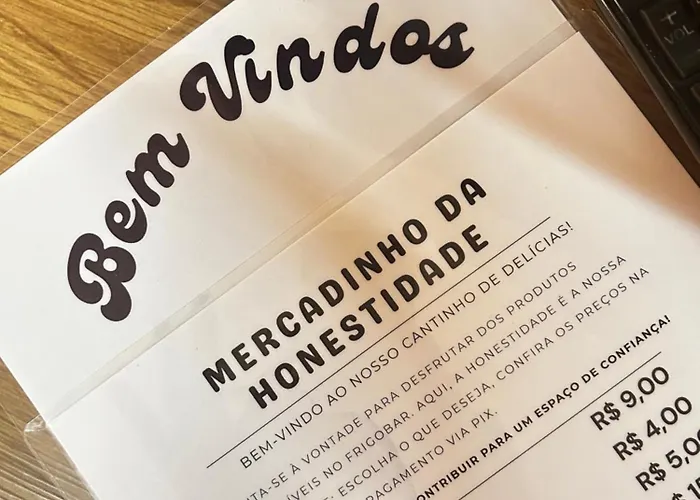 Bem Vindos
MERCADINHO DA
HONESTIDADE
BEM-VINDO AO NOSSO CANTINHO DE DELÍCIAS!
À VONTADE PARA DESFRUTAR DOS PRODUTOS
NO FRIGOBAR. AQUI, A HONESTIDADE É A NOSSA
ESCOLHA O QUE DESEJA, CONFIRA OS PREÇOS NA
PAGAMENTO VIA PIX.
CONTRIBUIR PARA UM ESPAÇO DE CONFIANÇA!
R$ 9,00
R$ 4,00
R$
VOL